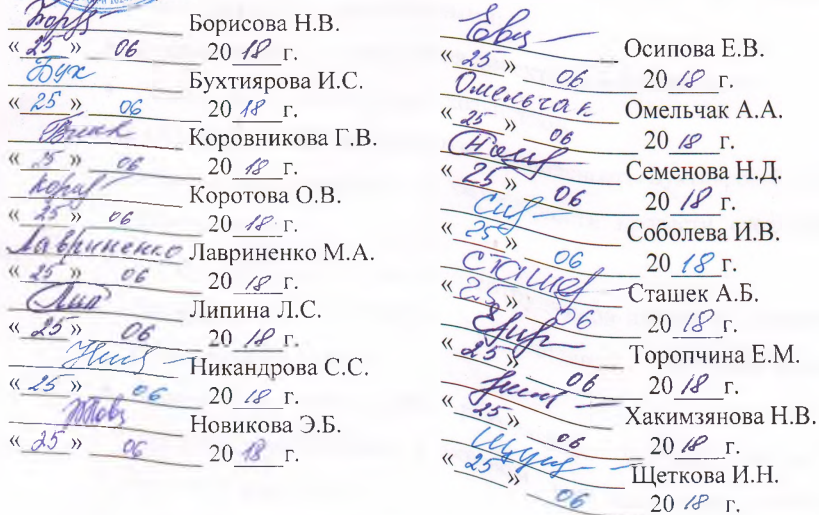 Борисова Н.В.
« 25 » 06 2018 г.
Бух Бухтиярова И.С.
« 25 » 06 2018 г.
Коровникова Г.В.
« 25 » 06 2018 г.
Коротова О.В.
« 25 » 06 2018 г.
Лавриненко Лавриненко М.А.
« 25 » 06 2018 г.
Липина Л.С.
« 25 » 06 2018 г.
Никандрова С.С.
« 25 » 06 2018 г.
Новикова Э.Б.
« 25 » 06 2018 г.
Осипова Е.В.
« 25 » 06 2018 г.
Омельчак Омельчак А.А.
« 25 » 06 2018 г.
Семенова Н.Д.
« 25 » 06 2018 г.
Соболева И.В.
« 25 » 06 2018 г.
Сташек Сташек А.Б.
« 25 » 06 2018 г.
Торопчина Е.М.
« 25 » 06 2018 г.
Хакимзянова Н.В.
« 25 » 06 2018 г.
Щеткова И.Н.
« 25 » 06 2018 г.